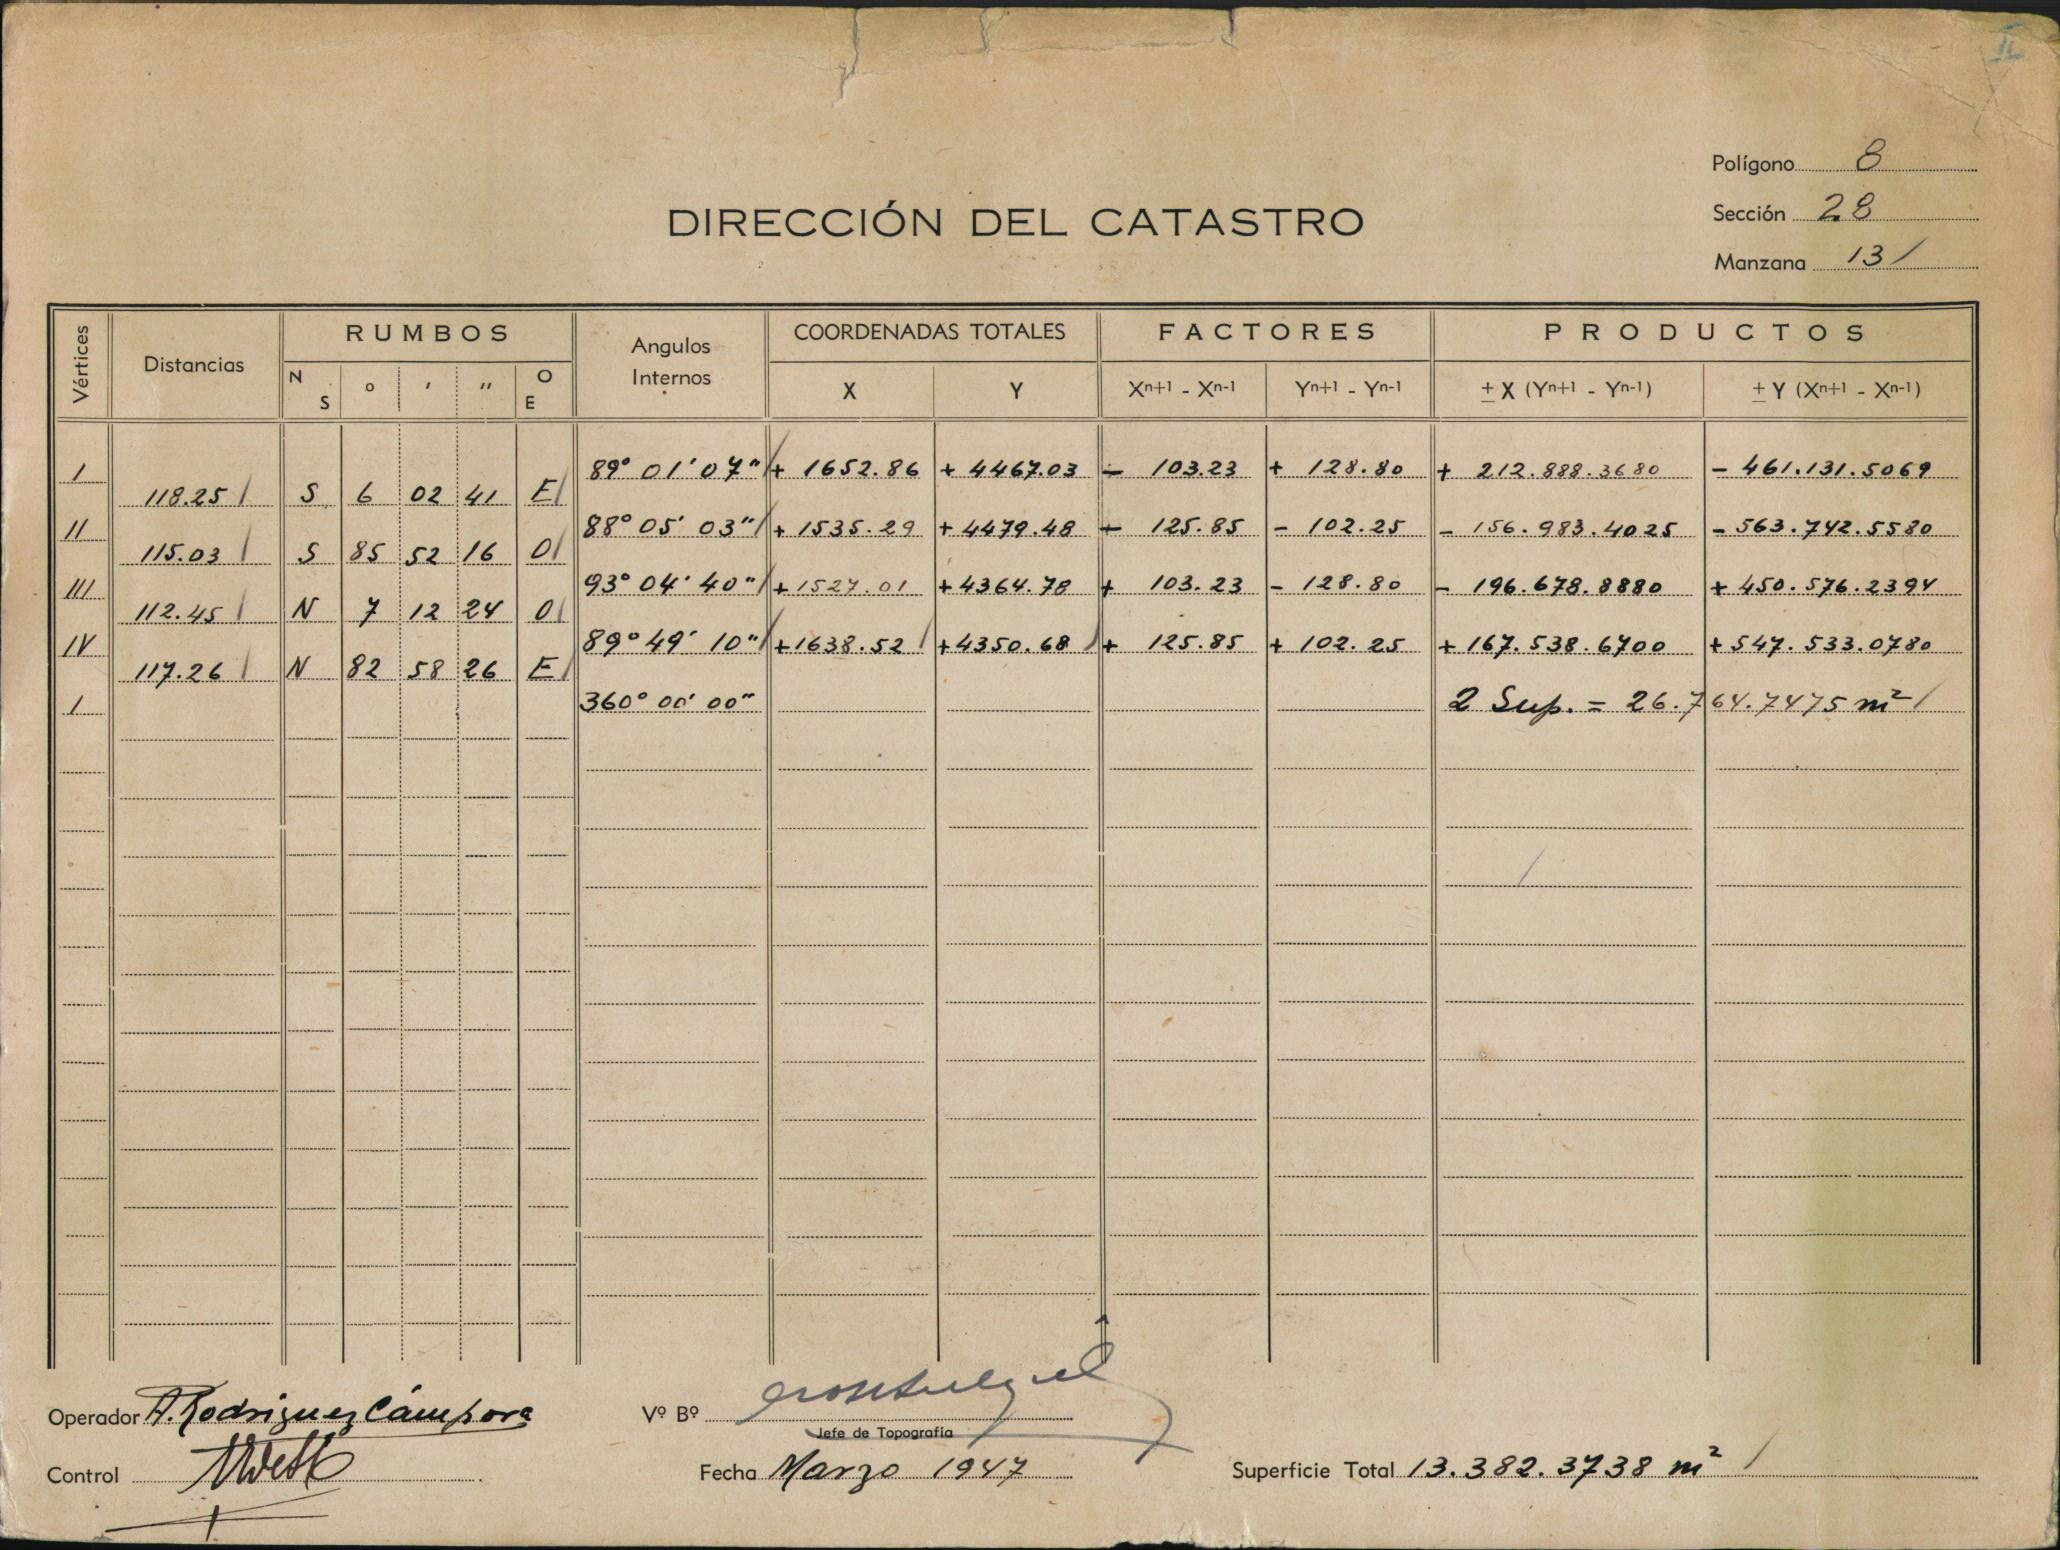 II
Polígono 8
DIRECCIÓN DEL CATASTRO
Sección 28
Manzana 13
Vértices Distancias RUMBOS Angulos Internos COORDENADAS TOTALES FACTORES PRODUCTOS
N S ° ′ ″ O E X Y Xn+1 - Xn-1 Yn+1 - Yn-1 ± X (Yn+1 - Yn-1) ± Y (Xn+1 - Xn-1)
I 89° 01′ 07″ + 1652.86 + 4467.03 - 103.23 + 128.80 + 212.888.3680 - 461.131.5069
118.25 S 6 02 41 E
II 88° 05′ 03″ + 1535.29 + 4479.48 - 125.85 - 102.25 - 156.983.4025 - 563.742.5580
115.03 S 85 52 16 O
III 93° 04′ 40″ + 1527.01 + 4364.78 + 103.23 - 128.80 - 196.678.8880 + 450.576.2394
112.45 N 7 12 24 O
IV 89° 49′ 10″ + 1638.52 + 4350.68 + 125.85 + 102.25 + 167.538.6700 + 547.533.0780
117.26 N 82 58 26 E
I 360° 00′ 00″ 2 Sup. = 26.764.7475 m²
Operador A. Rodriguez Cámpora Vº Bº
Jefe de Topografía
Control Fecha Marzo 1947 Superficie Total 13.382.3738 m²